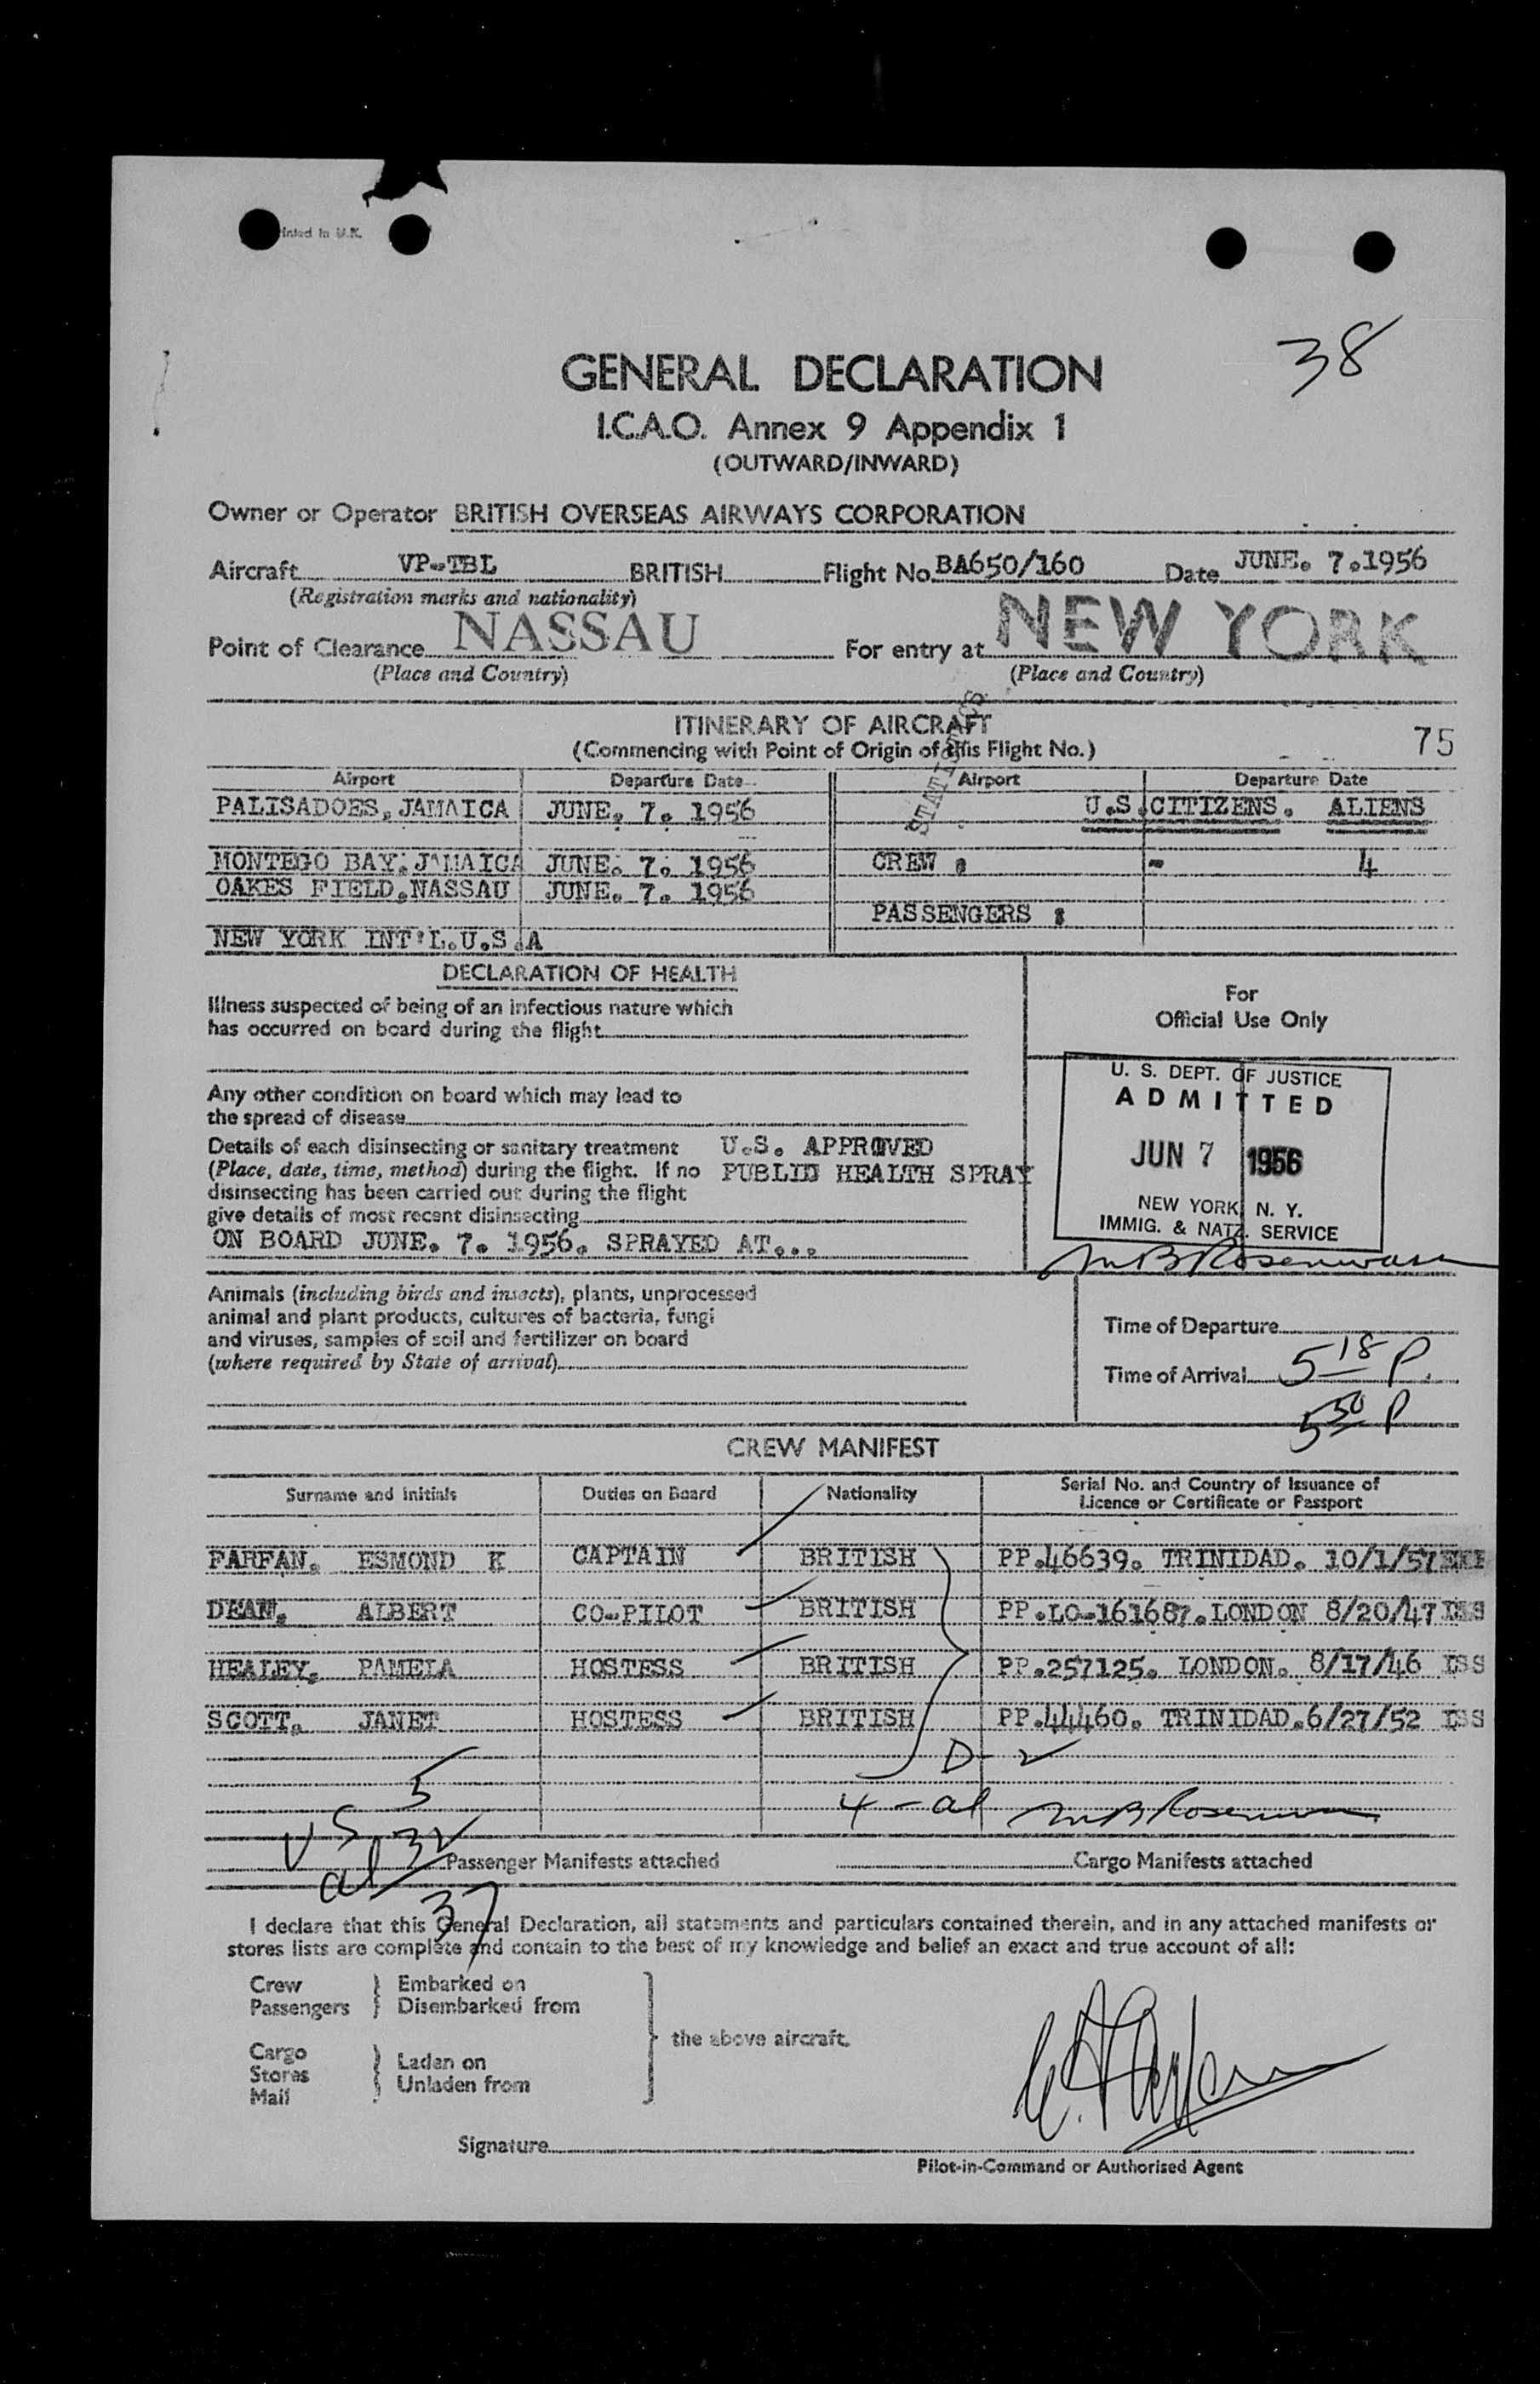 inted in U.K.
38
GENERAL DECLARATION
I.C.A.O. Annex 9 Appendix 1
(OUTWARD/INWARD)
Owner or Operator BRITISH OVERSEAS AIRWAYS CORPORATION
Aircraft VP-TBL BRITISH Flight No. BA650/160 Date JUNE. 7.1956
(Registration marks and nationality)
Point of Clearance NASSAU For entry at NEW YORK
(Place and Country) (Place and Country)
STATISTICS
ITINERARY OF AIRCRAFT
(Commencing with Point of Origin of this Flight No.) 75
Airport Departure Date Airport Departure Date
PALISADOES, JAMAICA JUNE. 7. 1956 U.S.CITIZENS. ALIENS
MONTEGO BAY. JAMAICA JUNE. 7. 1956 CREW : - 4
OAKES FIELD. NASSAU JUNE. 7. 1956
PASSENGERS :
NEW YORK INT'L.U.S.A
DECLARATION OF HEALTH
Illness suspected of being of an infectious nature which
has occurred on board during the flight
For
Official Use Only
Any other condition on board which may lead to
the spread of disease
Details of each disinsecting or sanitary treatment U.S. APPROVED
(Place, date, time, method) during the flight. If no PUBLIC HEALTH SPRAY
disinsecting has been carried out during the flight
give details of most recent disinsecting
ON BOARD JUNE. 7. 1956. SPRAYED AT...
U. S. DEPT. OF JUSTICE
ADMITTED
JUN 7 1956
NEW YORK, N. Y.
IMMIG. & NATZ. SERVICE
Animals (including birds and insects), plants, unprocessed
animal and plant products, cultures of bacteria, fungi
and viruses, samples of soil and fertilizer on board
(where required by State of arrival)
Time of Departure
Time of Arrival 5 18 P.
5 30 P
CREW MANIFEST
Surname and Initials Duties on Board Nationality Serial No. and Country of Issuance of
Licence or Certificate or Passport
FARFAN. ESMOND K CAPTAIN BRITISH PP.46639. TRINIDAD. 10/1/57
DEAN. ALBERT CO-PILOT BRITISH PP.LO-161687.LONDON 8/20/47 ISS
HEALEY. PAMELA HOSTESS BRITISH PP.257125. LONDON. 8/17/46 ISS
SCOTT. JANET HOSTESS BRITISH PP.44460. TRINIDAD.6/27/52 ISS
D-2
US 5
4 - al
al 32
Passenger Manifests attached Cargo Manifests attached
37
I declare that this General Declaration, all statements and particulars contained therein, and in any attached manifests or
stores lists are complete and contain to the best of my knowledge and belief an exact and true account of all:
Crew Embarked on
Passengers Disembarked from
the above aircraft.
Cargo Laden on
Stores Unladen from
Mail
Signature
Pilot-in-Command or Authorised Agent